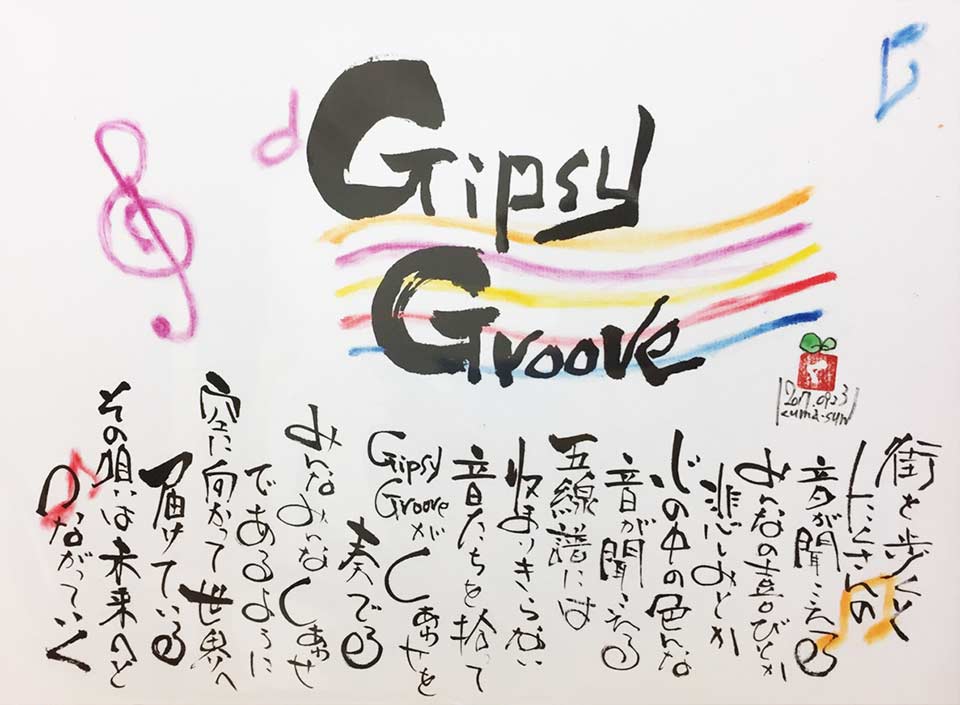 Gipsy
Groove
2017.09.23
kuma-sun
街を歩くと
たくさんの
音が聞こえる
みんなの喜びとか
悲しみとか
心の中の色んな
音が聞こえる
五線譜には
収まりきらない
音たちを拾って
Gipsy
Grooveが
しあわせを
奏でる
みんなみんなしあわせ
であるように
空に向かって世界へ
届けている
その唄は未来へと
つながっていく